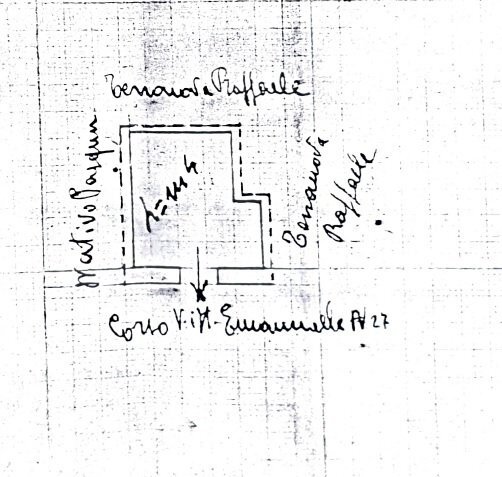 Terranova Raffaele
Mativo Pasquu
h=m4
Terranova
Raffaele
Corso Vitt. Emanuele N 27